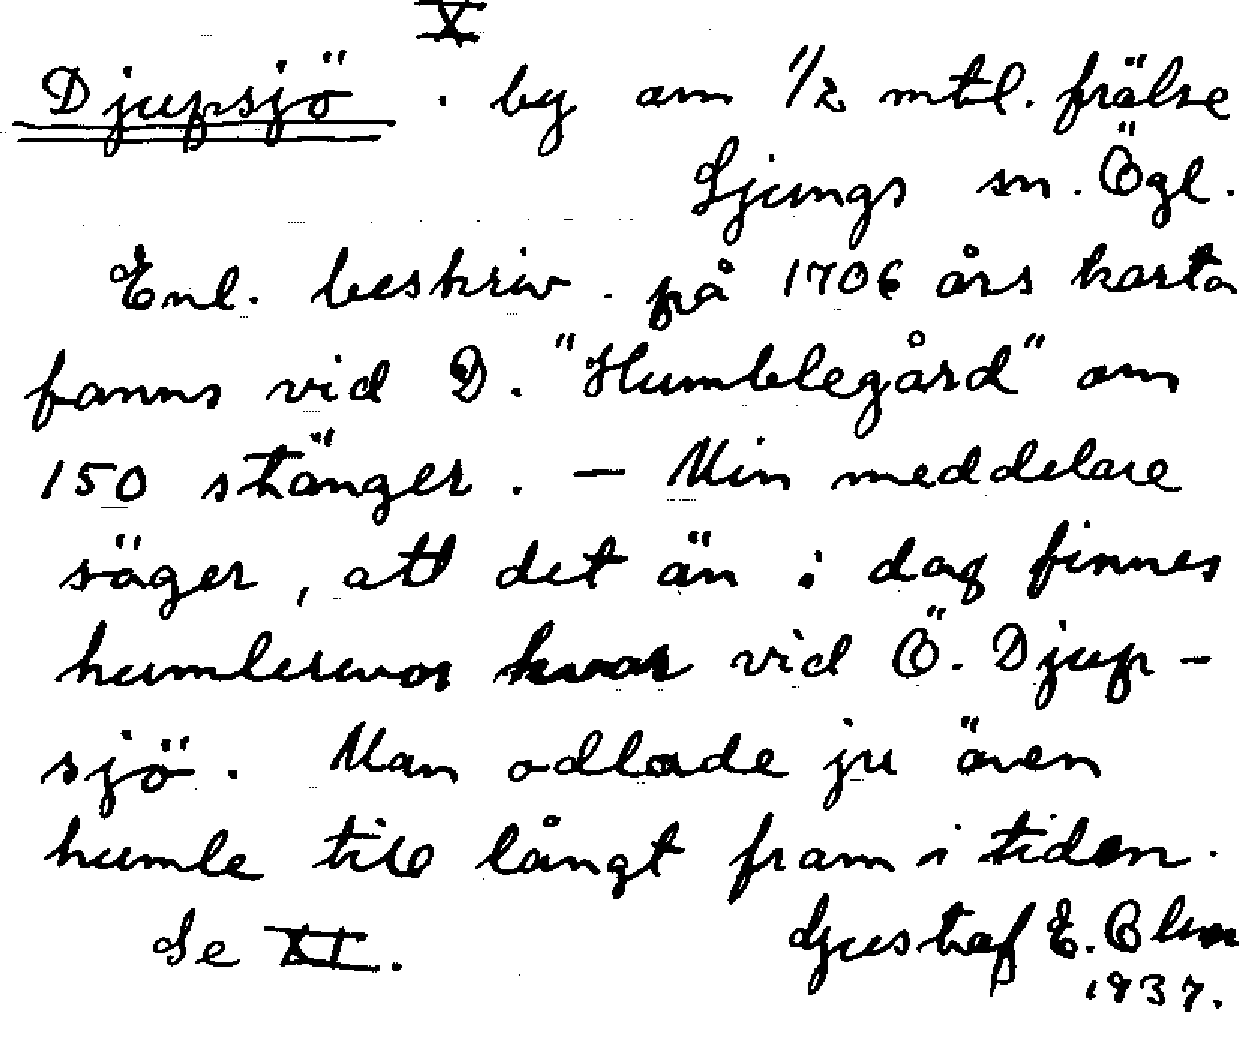 X
Djupsjö . by om 1/2 mtl. frälse
Ljungs sn. Ögl.
Enl. beskriv. på 1706 års karta
fanns vid D. "Humblegård" om
150 stänger. – Min meddelare
säger, att det än i dag finnes
humlerevor kvar vid Ö. Djup-
sjö. Man odlade ju även
humle till långt fram i tiden.
Se XI. Gustaf E.
1937.